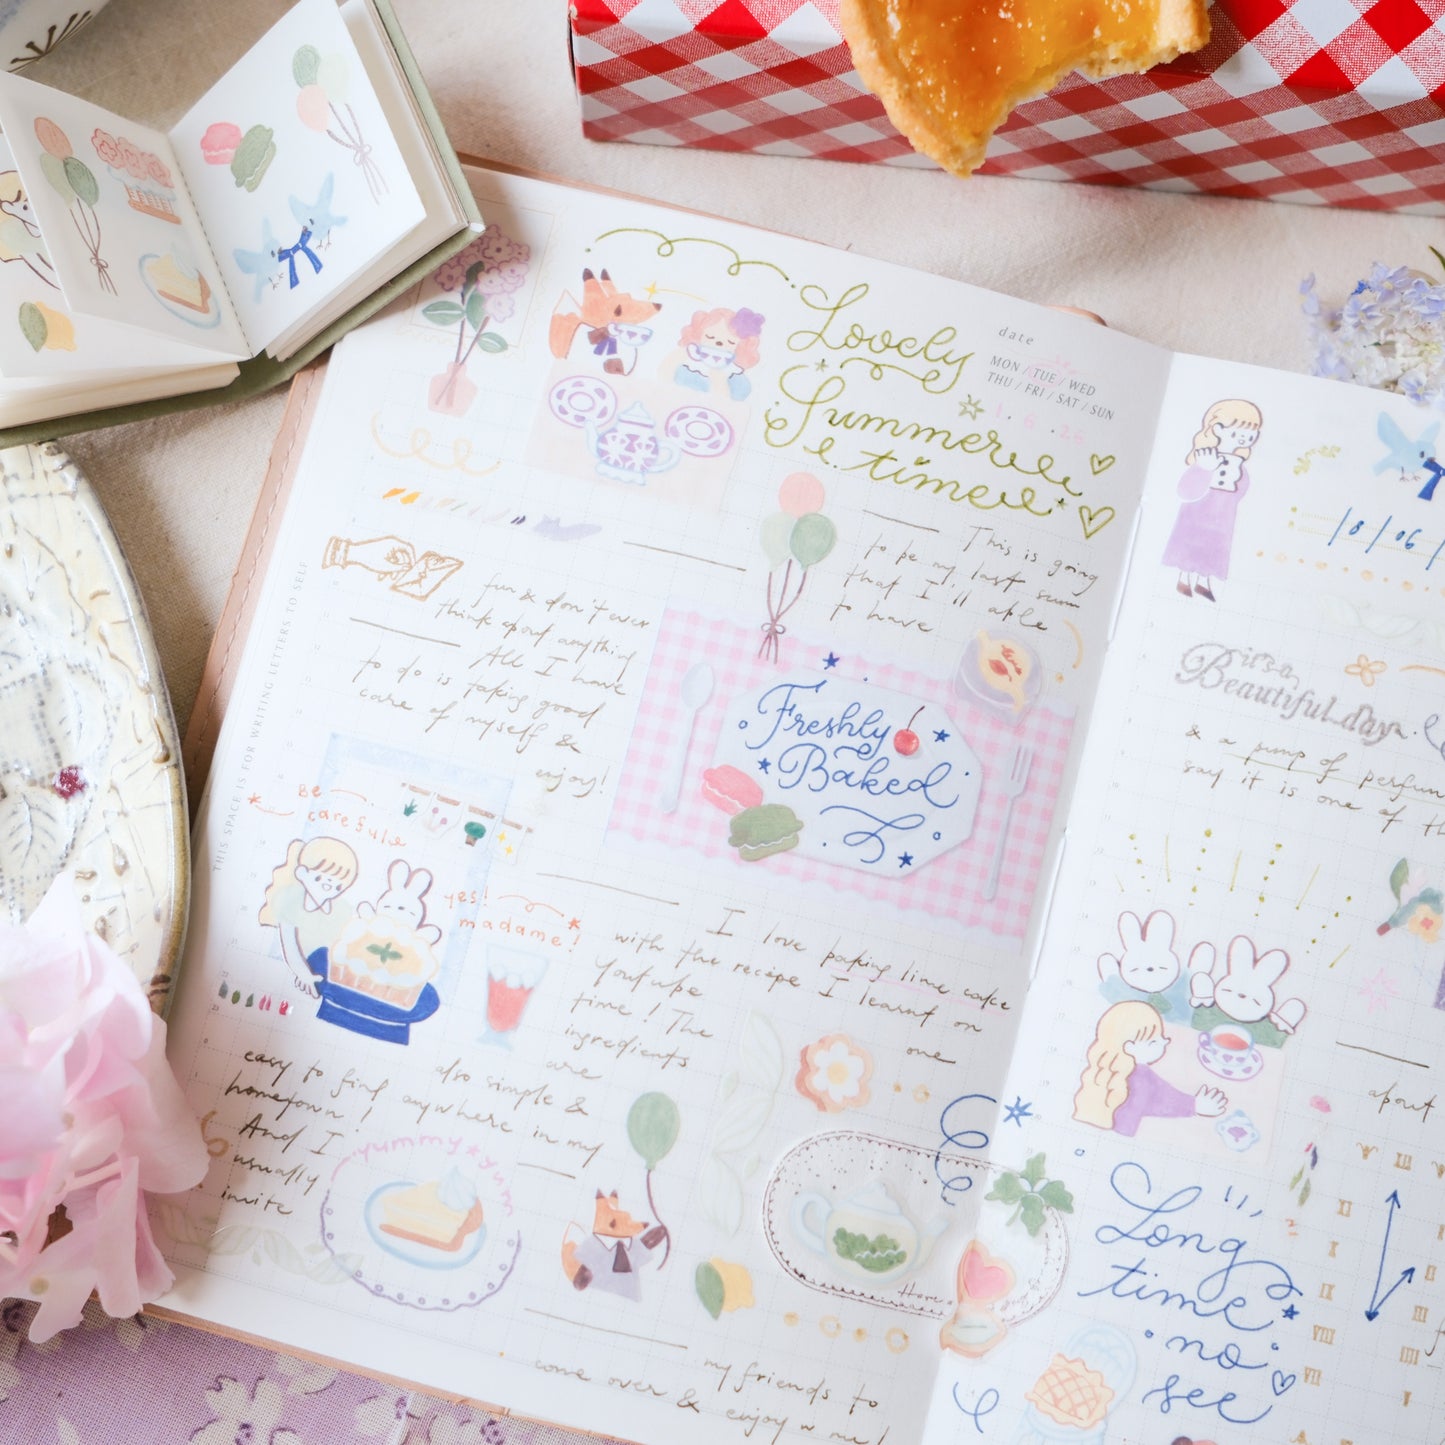 Lovely
Summer
time
date
MON / TUE / WED
THU / FRI / SAT / SUN
1. 6 .26
This is going
to be my last
that I'll able
to have
fun & don't ever
think about anything
All I have
to do is taking good
care of myself &
enjoy!
THIS SPACE IS FOR WRITING LETTERS TO SELF
Freshly
Baked
Be
careful
yes!
madame!
I love baking lime cake
with the recipe I learnt on
Youtube one
time! The
ingredients
are
also simple &
easy to find anywhere in my
hometown!
And I
usually
invite
yummy yum
my friends to
come over & enjoy w me!
18/06/
it's a
Beautiful day
& a pump of
say it is one of
about
Long
time
no
see